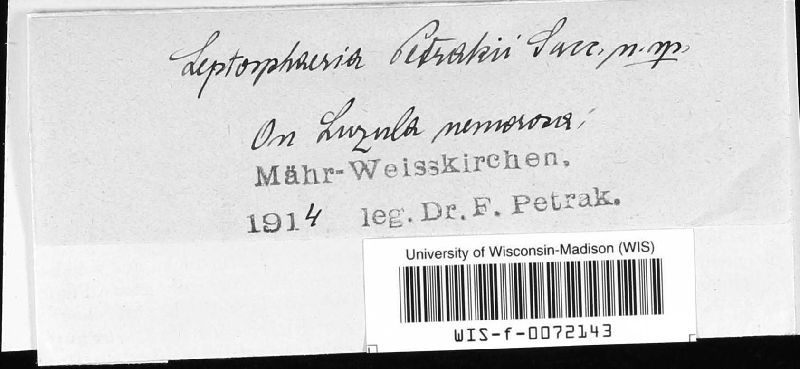 Leptosphaeria Petrakii Sacc. n. sp.
On Luzula nemorosa;
Mähr-Weisskirchen.
1914 leg. Dr. F. Petrak.
University of Wisconsin-Madison (WIS)
WIS-f-0072143